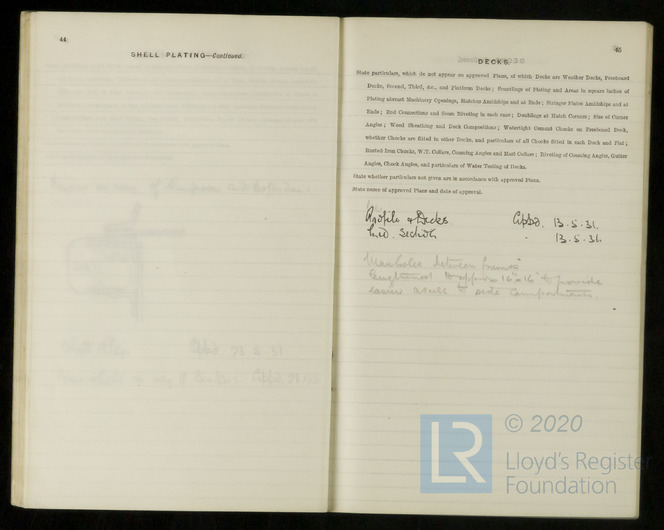 44
SHELL PLATING—Continued.
45
DECKS
State particulars, which do not appear on approved Plans, of which Decks are Weather Decks, Freeboard
Decks, Second, Third, &c., and Platform Decks; Scantlings of Plating and Areas in square inches of
Plating abreast Machinery Openings, Hatches Amidships and at Ends; Stringer Plates Amidships and at
Ends; End Connections and Seam Riveting in each case; Doublings at Hatch Corners; Size of Corner
Angles; Wood Sheathing and Deck Compositions; Watertight Cement Chocks on Freeboard Deck,
whether Chocks are fitted in other Decks, and particulars of all Chocks fitted in each Deck and Flat;
Rusted Iron Chocks, W.T. Collars, Coaming Angles and Mast Collars; Riveting of Coaming Angles, Gutter
Angles, Chock Angles, and particulars of Water Testing of Decks.
State whether particulars not given are in accordance with approved Plans.
State name of approved Plans and date of approval.
Profile & Decks Appd. 13.5.31.
Mid. Section " 13.5.31.
Manholes between
lengthened to approx 16" x 16" to provide
easier access to side compartments.
Appd. 28.5.31
© 2020
LR
Lloyd's Register
Foundation